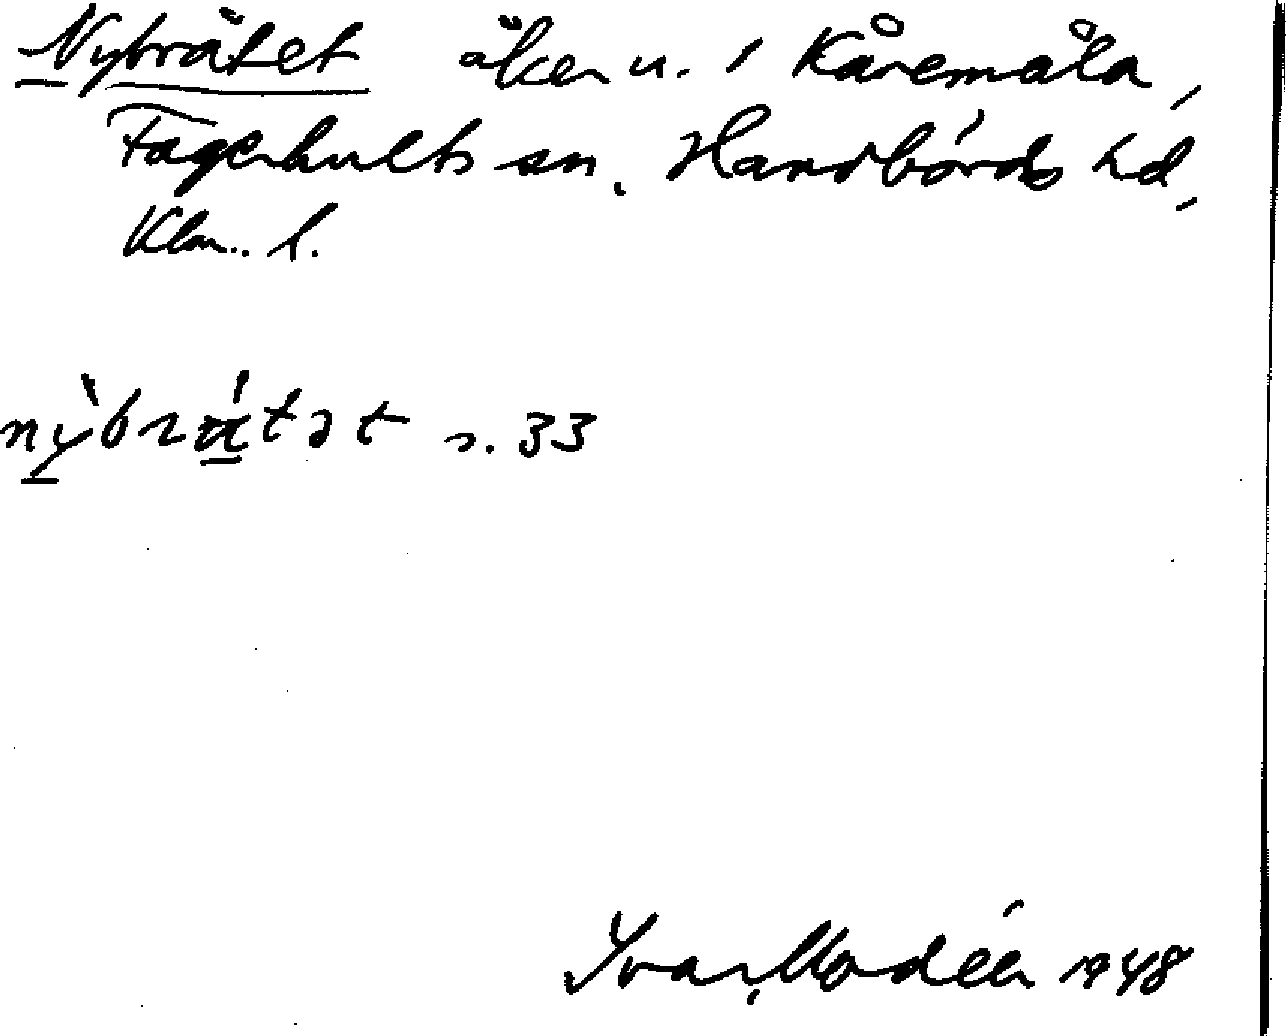 Nybrätet åker n. i Kåremåla,
Fagerhults sn. Handbörds hd,
Klm. l.
nỳbrätət s. 33
Ivar Modéer 1948